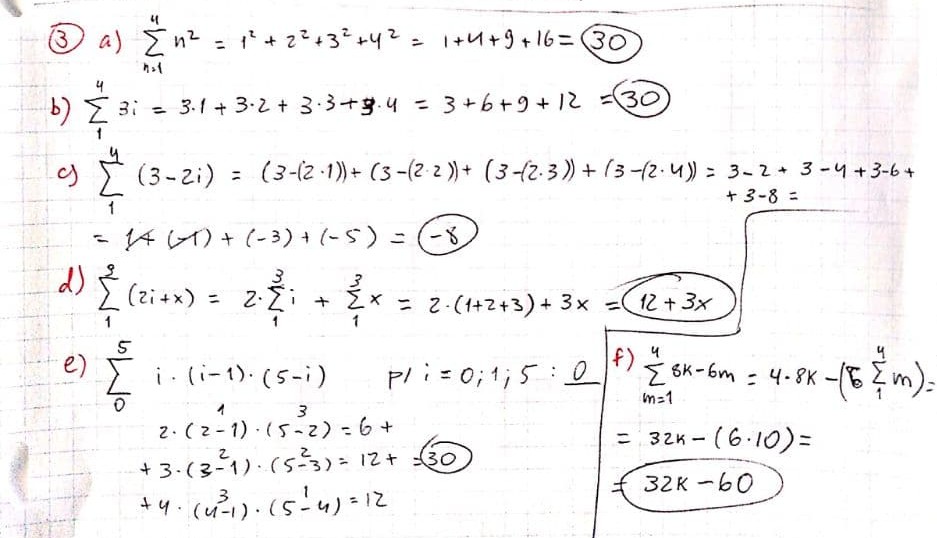 ③ a) 4 Σ n=1 n² = 1² + 2² + 3² + 4² = 1+4+9+16 = 30
b) 4 Σ 1 3i = 3·1 + 3·2 + 3·3 + 3·4 = 3+6+9+12 = 30
c) 4 Σ 1 (3-2i) = (3-(2·1)) + (3-(2·2)) + (3-(2·3)) + (3-(2·4)) = 3-2 + 3-4 + 3-6 +
+ 3-8 =
= (-1) + (-3) + (-5) = -8
d) 3 Σ 1 (2i+x) = 2· 3 Σ 1 i + 3 Σ 1 x = 2·(1+2+3) + 3x = 12+3x
e) 5 Σ 0 i·(i-1)·(5-i) p/ i = 0;1;5 : 0
2·(2-1)·(5-2) = 6 +
1 3
+3·(3-1)·(5-3) = 12 + = 30
2 2
+4·(4-1)·(5-4) = 12
3 1
f) 4 Σ m=1 8K-6m = 4·8K - (6 4 Σ 1 m) =
= 32K - (6·10) =
= 32K - 60